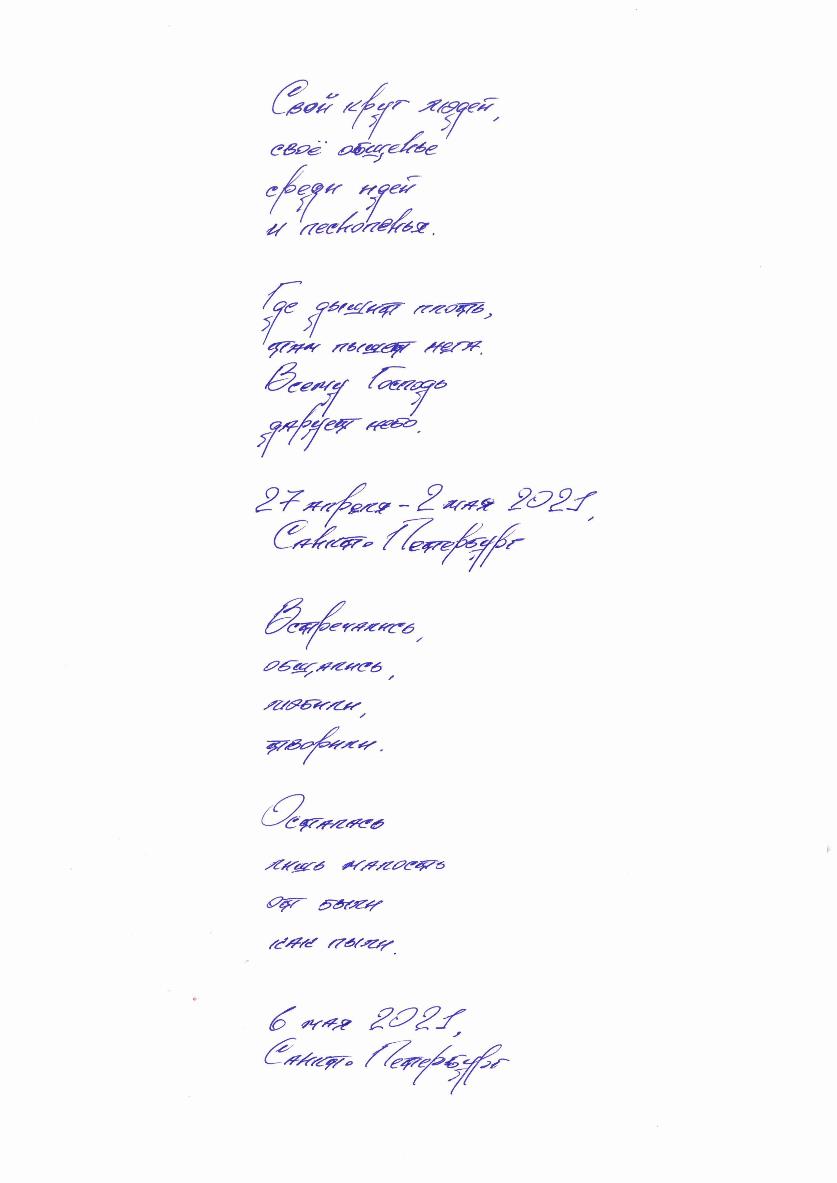 Свой круг людей,
своё общенье
среди идей
и песнопенья.
Где дышит плоть,
там пышет нега.
Всему Господь
дарует небо.
27 апреля - 2 мая 2021,
Санкт-Петербург
Встречались,
общались,
любили,
творили.
Осталась
лишь малость
от были
как пыли.
6 мая 2021,
Санкт-Петербург